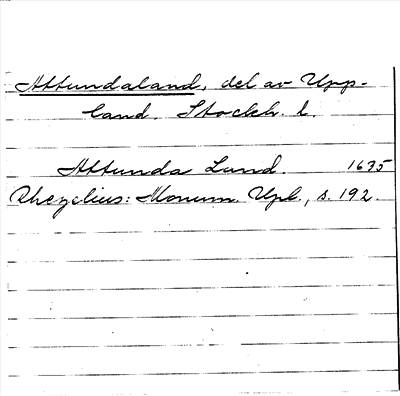 Attundaland, del av Upp-
land. Stockh. l.
Attunda Lund. 1635
Rhezelius: Monum. Upl., s. 192.